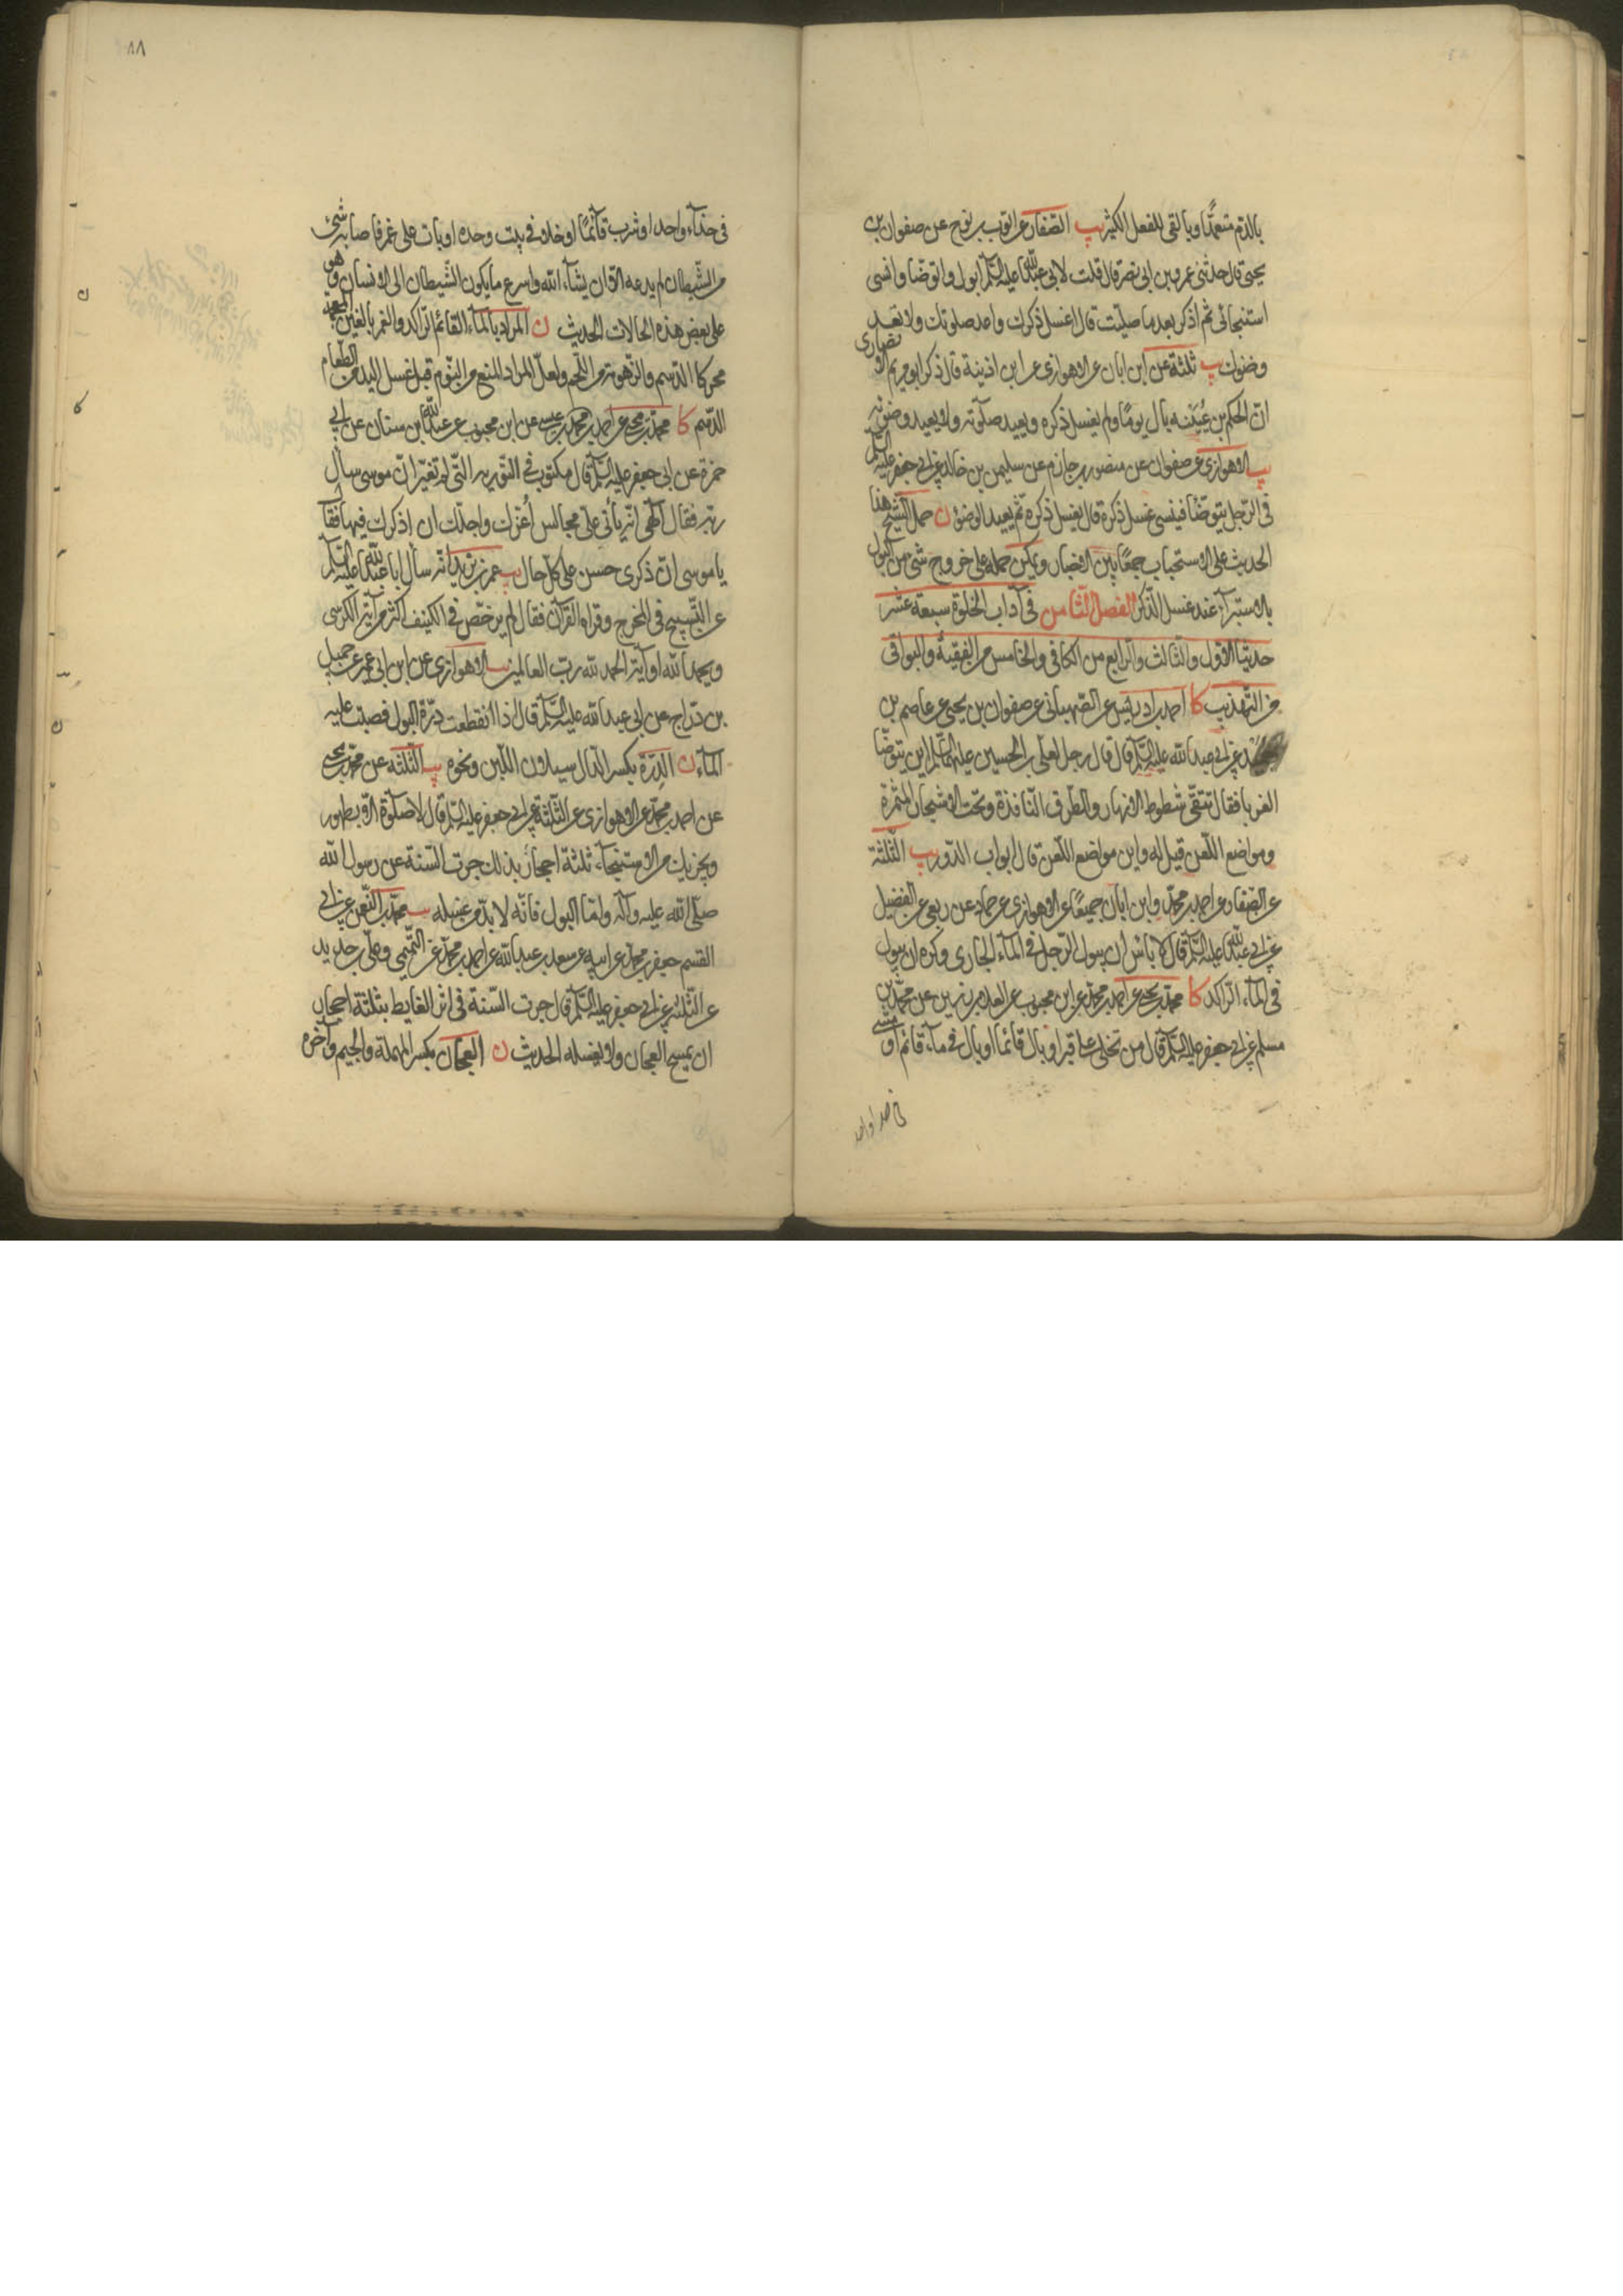 بالدم متعمدا وبالقى للفعل الكثير يب الصفار عن ايوب بن نوح عن صفوان بن
يحيى قال حدثنى عمرو بن ابى نصر قال قلت لابى عبد الله عليه السلم ابول واتوضا وانسى
استنجائى ثم اذكر بعد ما صليت قال اغسل ذكرك واعد صلوتك ولا تعد
وضوئك يب ثلثة عن ابن ابان عن الاهوازى عن ابن اذينة قال ذكر ابو مريم الانصارى
ان الحكم بن عُيَيْنه بال يومًا ولم يغسل ذكره ويعيد صلوته ولا يعيد وضوئه
يب الاهوازى عن صفوان عن منصور بن حازم عن سليمن بن خالد عن ابى جعفر عليه السلم
فى الرجل يتوضّأ فينسى غسل ذكره قال يغسل ذكره ثم يعيد الوضوء ن حمل الشيخ هذا
الحديث على الاستحباب جمعًا بين الاخبار ويمكن حمله على خروج شئ من البول
بالاستبرآء عند غسل الذكر الفصل الثامن فى آداب الخلوة سبعة عشر
حديثا الاول والثالث والرابع من الكافى والخامس من الفقيه والبواقى
من التهذيب كا احمد بن ادريس عن الصهبانى عن صفوان بن يحيى عن عاصم بن
حميد عن ابى عبد الله عليه السلم قال قال رجل لعلى بن الحسين عليهما السلم اين يتوضّا
الغربا فقال تتقى شطوط الانهار والطرق النافذة وتحت الاشجار المثمرة
ومواضع اللعن قيل له واين مواضع اللعن قال ابواب الدور يب الثلثة
عن الصفار عن احمد بن محمد وابن ابان جميعًا عن الاهوازى عن حماد عن ربعى عن الفضيل
عن ابى عبد الله عليه السلم قال لا بأس ان يبول الرجل فى المآء الجارى وكره ان يبول
فى المآء الراكد كا محمد بن يحيى عن احمد بن محمد عن ابن محبوب عن العلاء بن رزين عن محمد بن
مسلم عن ابى جعفر عليه السلم قال من تخلى على قبر او بال قائما او بال فى مآء قائم او مشى
فى حذا واحد
٨٨
فى حذآء واحد او شرب قآئمًا او خلا فى بيت وحده او بات على غمر فاصابه شئ
من الشيطان لم يدعه الا ان يشآء الله واسرع ما يكون الشيطان الى الانسان وهو
على بعض هذه الحالات الحديث ن المراد بالمآء القائم الراكد والغمر بالغين المعجمة
محركا الدسم والزهومة من اللحم ولعل المراد المنع من النوم قبل غسل اليد من الطعام
الدسم كا محمد بن يحيى عن احمد بن محمد بن عيسى عن ابن محبوب عن عبد الله بن سنان عن ابى
حمزة عن ابى جعفر عليه السلم قال مكتوب فى التورية التى لم تغير ان موسى سأل
ربه فقال آلهى انه يأتى على مجالس أعزك واجلك ان اذكرك فيها فقال
يا موسى ان ذكرى حسن على كل حال يب عمر بن يزيد انه سأل ابا عبد الله عليه السلم
عن التسبيح فى المخرج وقراه القرآن فقال لم يرخص فى الكنيف اكثر من آية الكرسى
ويحمد الله او آية الحمد لله رب العالمين يب الاهوازى عن ابن ابى عمير عن جميل
بن دراج عن ابى عبد الله عليه السلم قال اذا انقطعت درّة البول فصب عليه
المآء ن الدِرّة بكسر الدال سيلان اللبن ونحوه يب الثلثه عن محمد بن يحيى
عن احمد بن محمد عن الاهوازى عن الثلثة عن ابى جعفر عليه السلم قال لا صلوة الا بطهور
ويجزيك من الاستنجآء ثلثة احجار بذلك جرت السنة عن رسول الله
صلى الله عليه وآله وامّا البول فانه لا بد من غسله يب محمد بن النعمن عن ابى
القسم جعفر بن محمد عن ابيه عن سعد بن عبد الله عن احمد بن محمد عن التميمى وعلى بن حديد
عن الثلثه عن ابى جعفر عليه السلم قال جرت السنة فى اثر الغايط بثلثة احجار
ان يمسح العجان ولا يغسله الحديث ن العجان بكسر المهملة والجيم وآخره